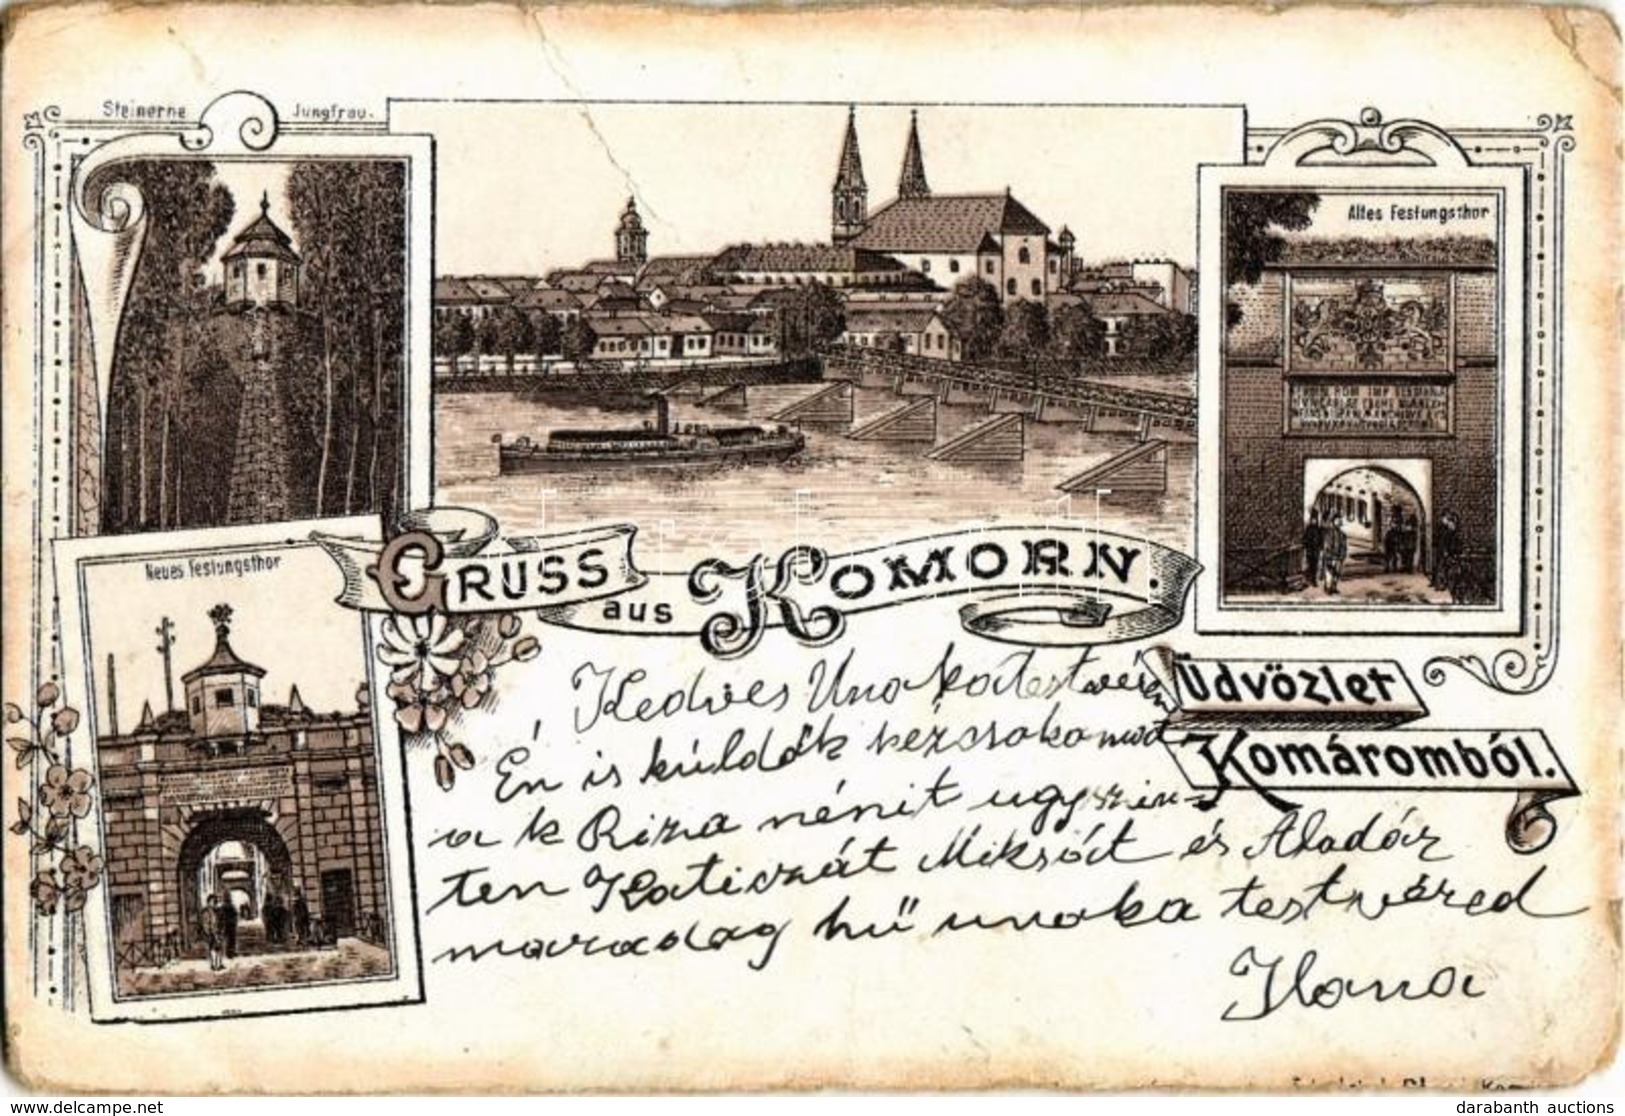 Steinerne Jungfrau.
Altes Festungsthor
Neues Festungsthor
GRUSS
aus KOMORN.
Üdvözlet
Komáromból.
Kedves Unokatestvérem
Én is küldök kézcsokomat
a k Riza nénit ugyszin-
ten Katiczát Miksát és Aladár
maradag hű unoka testvéred
Ilona
www.delcampe.net
darabanth auctions